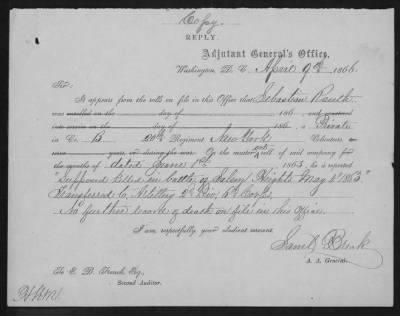 Copy.
REPLY.
Adjutant General's Office,
Washington, D. C. April 9th 1866.
Sir:
It appears from the rolls on file in this Office that Sebastian Rauch
was enrolled on the day of 186 , and mustered
into service on the day of 186 , a Private
in Co. B 20th Regiment New York Volunteers,
years, or during the war. On the muster roll of said company for
the months of dated June 1st, 1863, he is reported
"Supposed killed in battle of Salem Heights May 4" 1863"
Transferred to Artillery 2d Div. 6th Corps.
No further record of death on file in this Office.
I am respectfully your obedient servant
Saml Breck
A. A. General.
To E. B. French, Esq.,
Second Auditor.